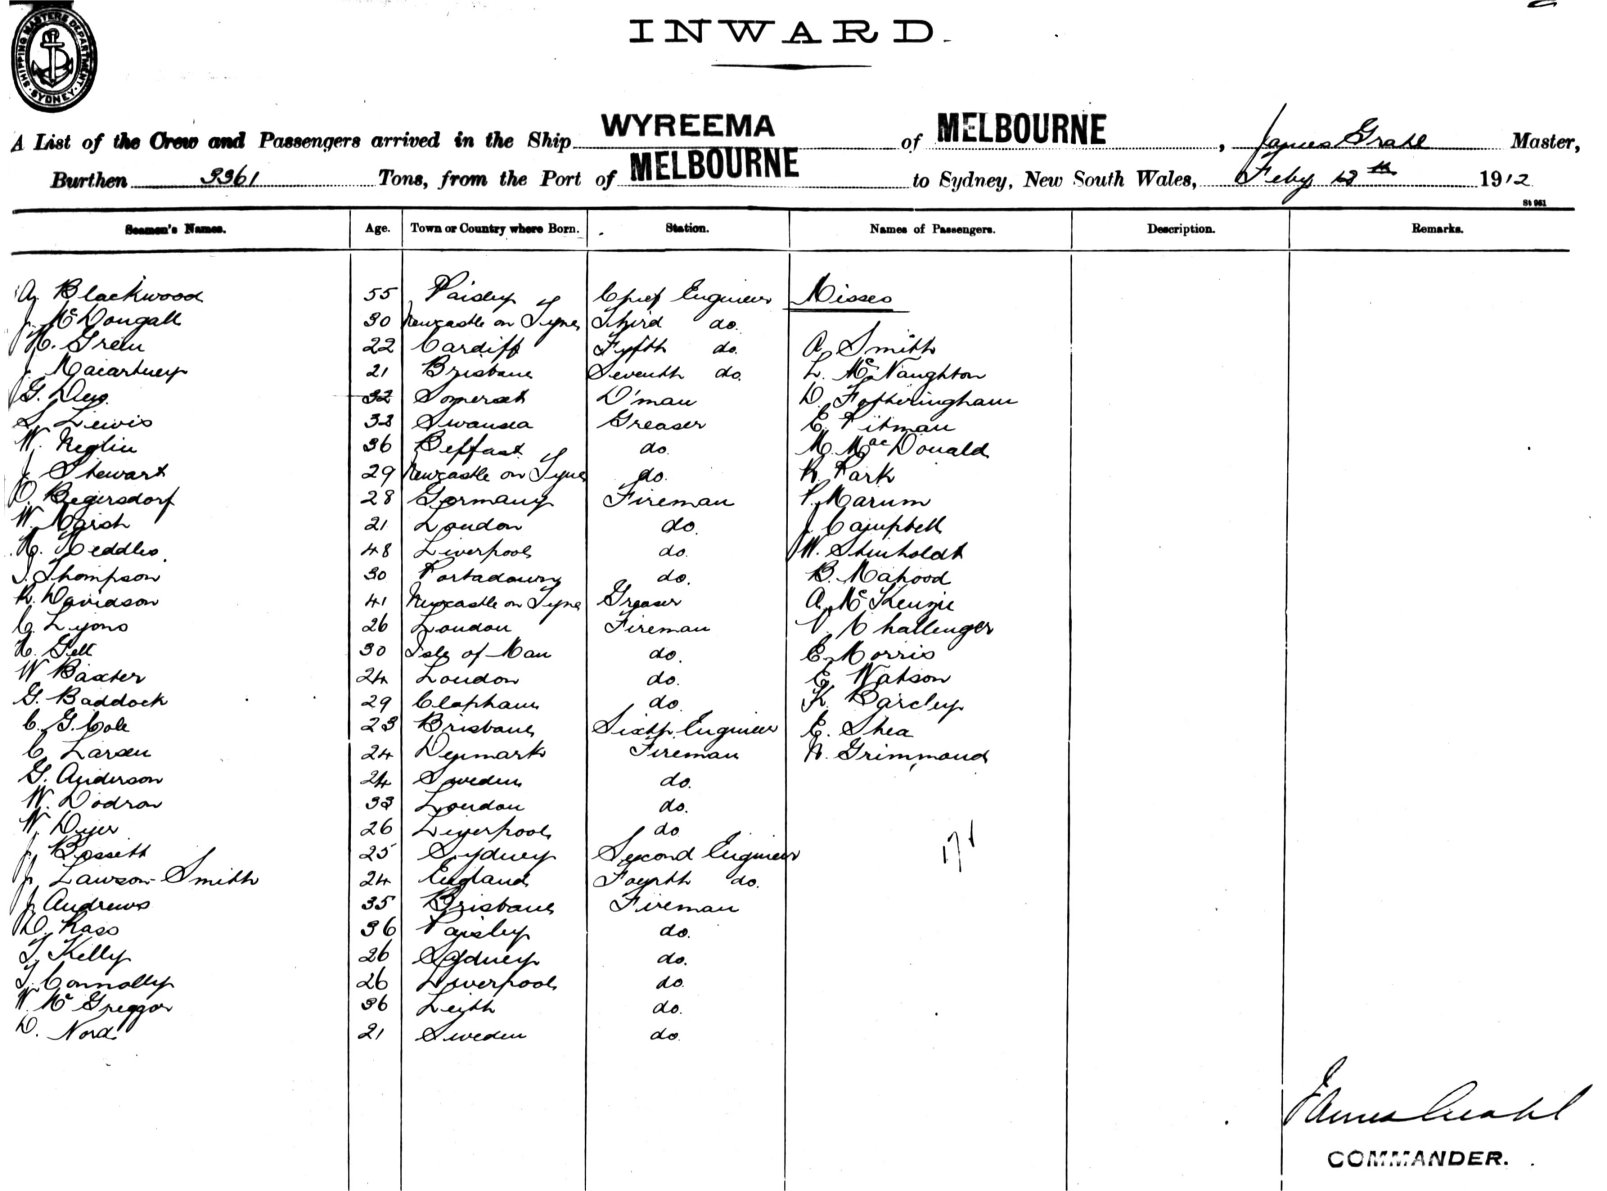 SHIPPING MASTERS DEPARTMENT SYDNEY
INWARD.
A List of the Crew and Passengers arrived in the Ship WYREEMA of MELBOURNE, James Grahl Master,
Burthen 3361 Tons, from the Port of MELBOURNE to Sydney, New South Wales, Feby 12th 1912
St 961
Seamen's Names. Age. Town or Country where Born. Station. Names of Passengers. Description. Remarks.
A. Blackwood 55 Paisley Chief Engineer Misses
J. McDougall 30 Newcastle on Tyne Third do.
H. Green 22 Cardiff Fifth do. A. Smith
J. Macartney 21 Brisbane Seventh do. L. McNaughton
G. 32 Somerset D'man D. Fotheringham
S. Lewis 33 Swansea Greaser E. Pitman
W. Neglin 36 Belfast do. M. MacDonald
J. Stewart 29 Newcastle on Tyne do. R. Park
O. Begersdorf 28 Germany Fireman P. Marum
W. Marsh 21 London do. J. Campbell
H. Heddles. 48 Liverpool do. W. Shuholdt
J. Thompson 30 Portadown do. B. Mahood
R. Davidson 41 Newcastle on Tyne Greaser A. McKenzie
C. Lyons 26 London Fireman V. Challenger
H. Gell 30 Isle of Man do. E. Morris
W. Baxter 24 London do. E. Watson
G. Baddock 29 Clapham do. K. Barcley
C. G. Cole 23 Brisbane Sixth Engineer E. Shea
C. Larsen 24 Denmark Fireman N. Grimmond
G. Anderson 24 Sweden do.
W. Dodron 33 London do.
W. Dyer 26 Liverpool do
J. Bossett 25 Sydney Second Engineer 17
J. Lawson-Smith 24 England Fourth do.
J. Andrews 35 Brisbane Fireman
D. Kass 36 Paisley do.
T. Kelly 26 Sydney do.
T. Connolly 26 Liverpool do.
W. McGreggor 36 Leith do.
D. Nord 21 Sweden do.
James Grahl
COMMANDER.